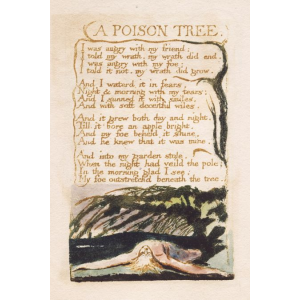 A POISON TREE.
I was angry with my friend;
I told my wrath, my wrath did end.
I was angry with my foe:
I told it not, my wrath did grow.
And I waterd it in fears,
Night & morning with my tears:
And I sunned it with smiles,
And with soft deceitful wiles.
And it grew both day and night.
Till it bore an apple bright.
And my foe beheld it shine,
And he knew that it was mine.
And into my garden stole,
When the night had veild the pole;
In the morning glad I see;
My foe outstretchd beneath the tree.